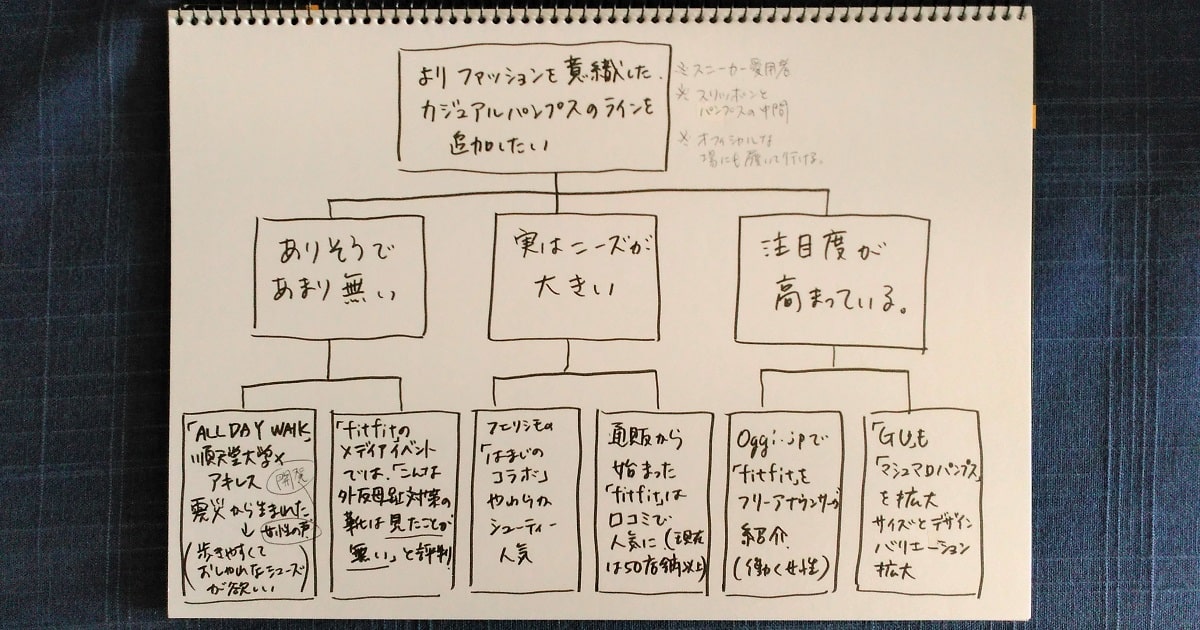 より ファッションを 意識した
カジュアルパンプスのラインを
追加したい
※ スニーカー愛用者
※ スリッポンと
パンプスの中間
※ オフィシャルな
場にも履いて行ける。
ありそうで
あまり無い
実はニーズが
大きい
注目度が
高まっている。
「ALL DAY WALK」
順天堂大学×
アキレス 開発
震災から生まれた
↓ 女性の声
(歩きやすくて
おしゃれなシューズ
が欲しい)
「fitfit」の
メディアイベント
では、「こんな
外反母趾対策の
靴は見たことが
無い」と評判!
フェリシモの
「はまじの
コラボ」
やわらか
シューティー
人気
通販から
始まった
「fitfit」は
口コミで
人気に(現在
は50店舗以上)
Oggi.jpで
「fitfit」を
フリーアナウンサーが
紹介
(働く女性)
「GU」も
「マシュマロパンプス」
を拡大
サイズとデザイン
バリエーション
拡大